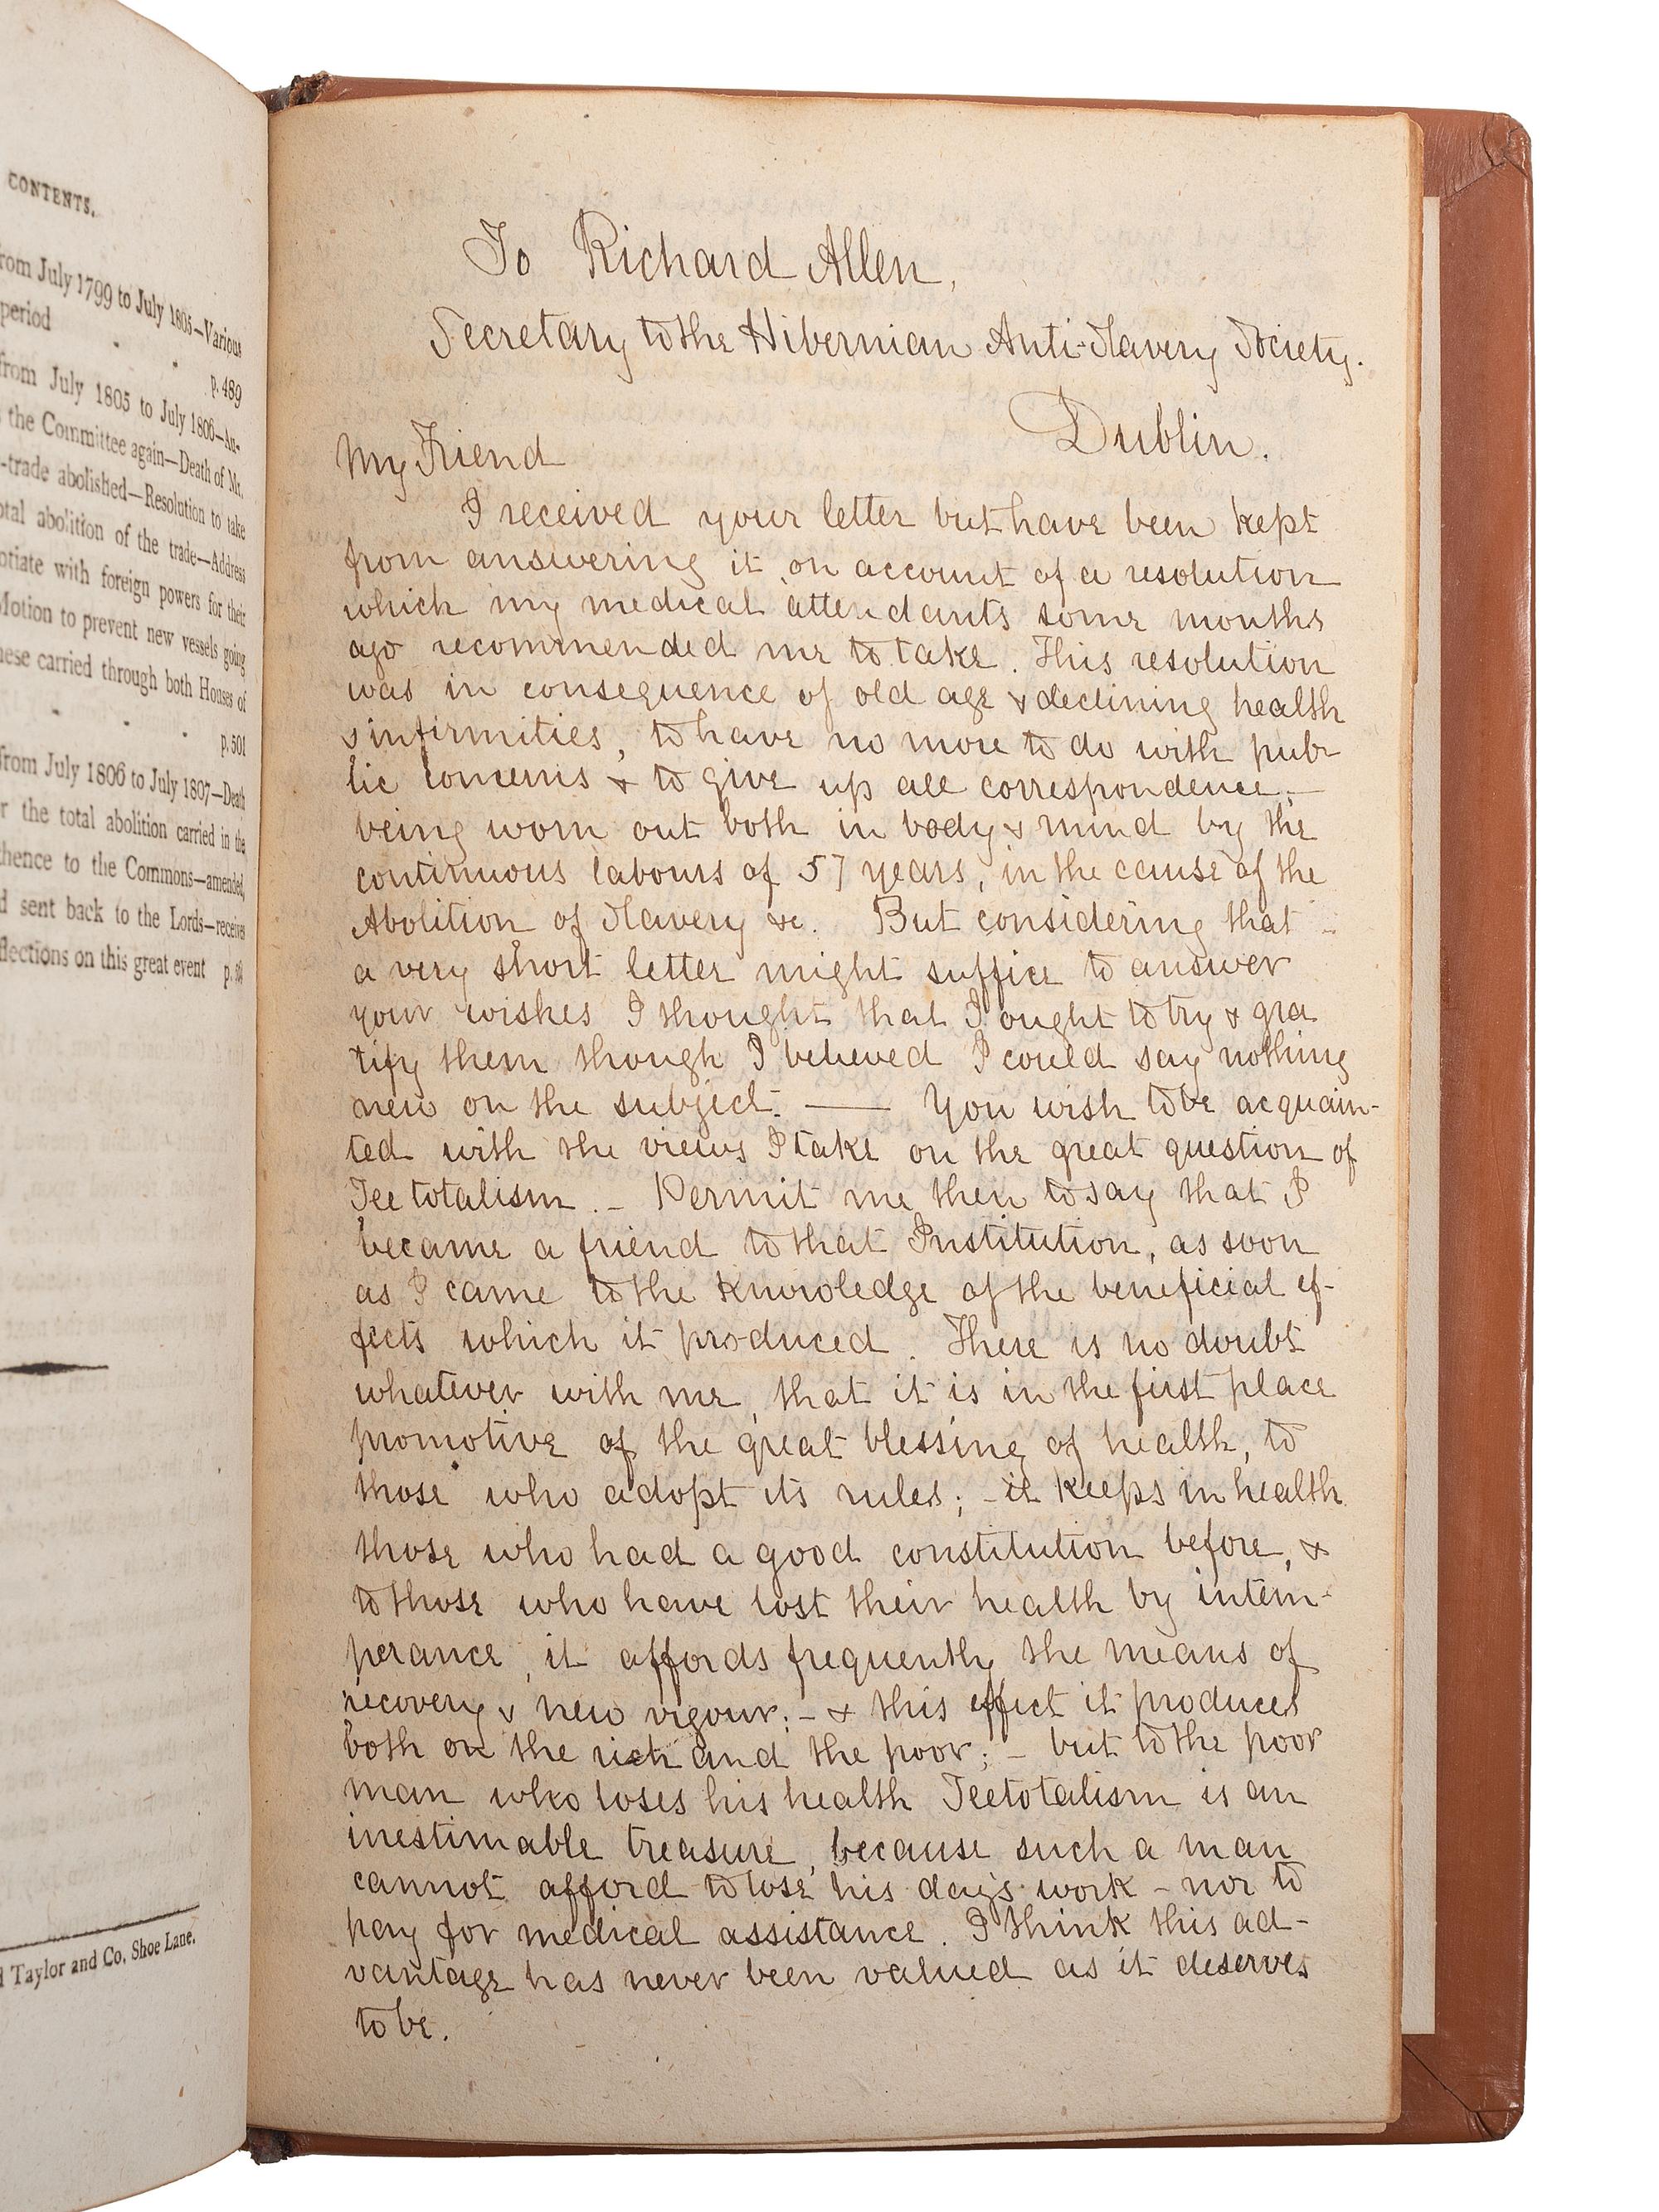 CONTENTS.
from July 1799 to July 1805—Various
period
p. 489
from July 1805 to July 1806—Au-
the Committee again—Death of Mr.
-trade abolished—Resolution to take
total abolition of the trade—Address
otiate with foreign powers for their
Motion to prevent new vessels going
hese carried through both Houses of
p. 501
from July 1806 to July 1807—Death
r the total abolition carried in the
thence to the Commons—amended,
d sent back to the Lords—receives
flections on this great event p.
d Taylor and Co. Shoe Lane.
To Richard Allen,
Secretary to the Hibernian Anti-Slavery Society.
Dublin.
My Friend
I received your letter but have been kept
from answering it, on account of a resolution
which my medical attendants some months
ago recommended me to take. This resolution
was in consequence of old age & declining health
& infirmities, to have no more to do with pub-
lic concerns & to give up all correspondence;—
being worn out both in body & mind by the
continuous labours of 57 years, in the cause of the
Abolition of Slavery &c. But considering that -
a very short letter might suffice to answer
your wishes I thought that I ought to try & gra
tify them though I believed I could say nothing
new on the subject. —— You wish to be acquain-
ted with the views I take on the great question of
Teetotalism. - Permit me then to say that I
became a friend to that Institution, as soon
as I came to the knowledge of the beneficial ef-
fects which it produced. There is no doubt
whatever with me, that it is in the first place
promotive of the great blessing of health, to
those who adopt its rules; - it keeps in health
those who had a good constitution before, &
to those who have lost their health by intem-
perance, it affords frequently the means of
recovery & new vigour; - & this effect it produces
both on the rich and the poor; - but to the poor
man who loses his health Teetotalism is an
inestimable treasure, because such a man
cannot afford to lose his day's work - nor to
pay for medical assistance. I think this ad-
vantage has never been valued as it deserves
to be.